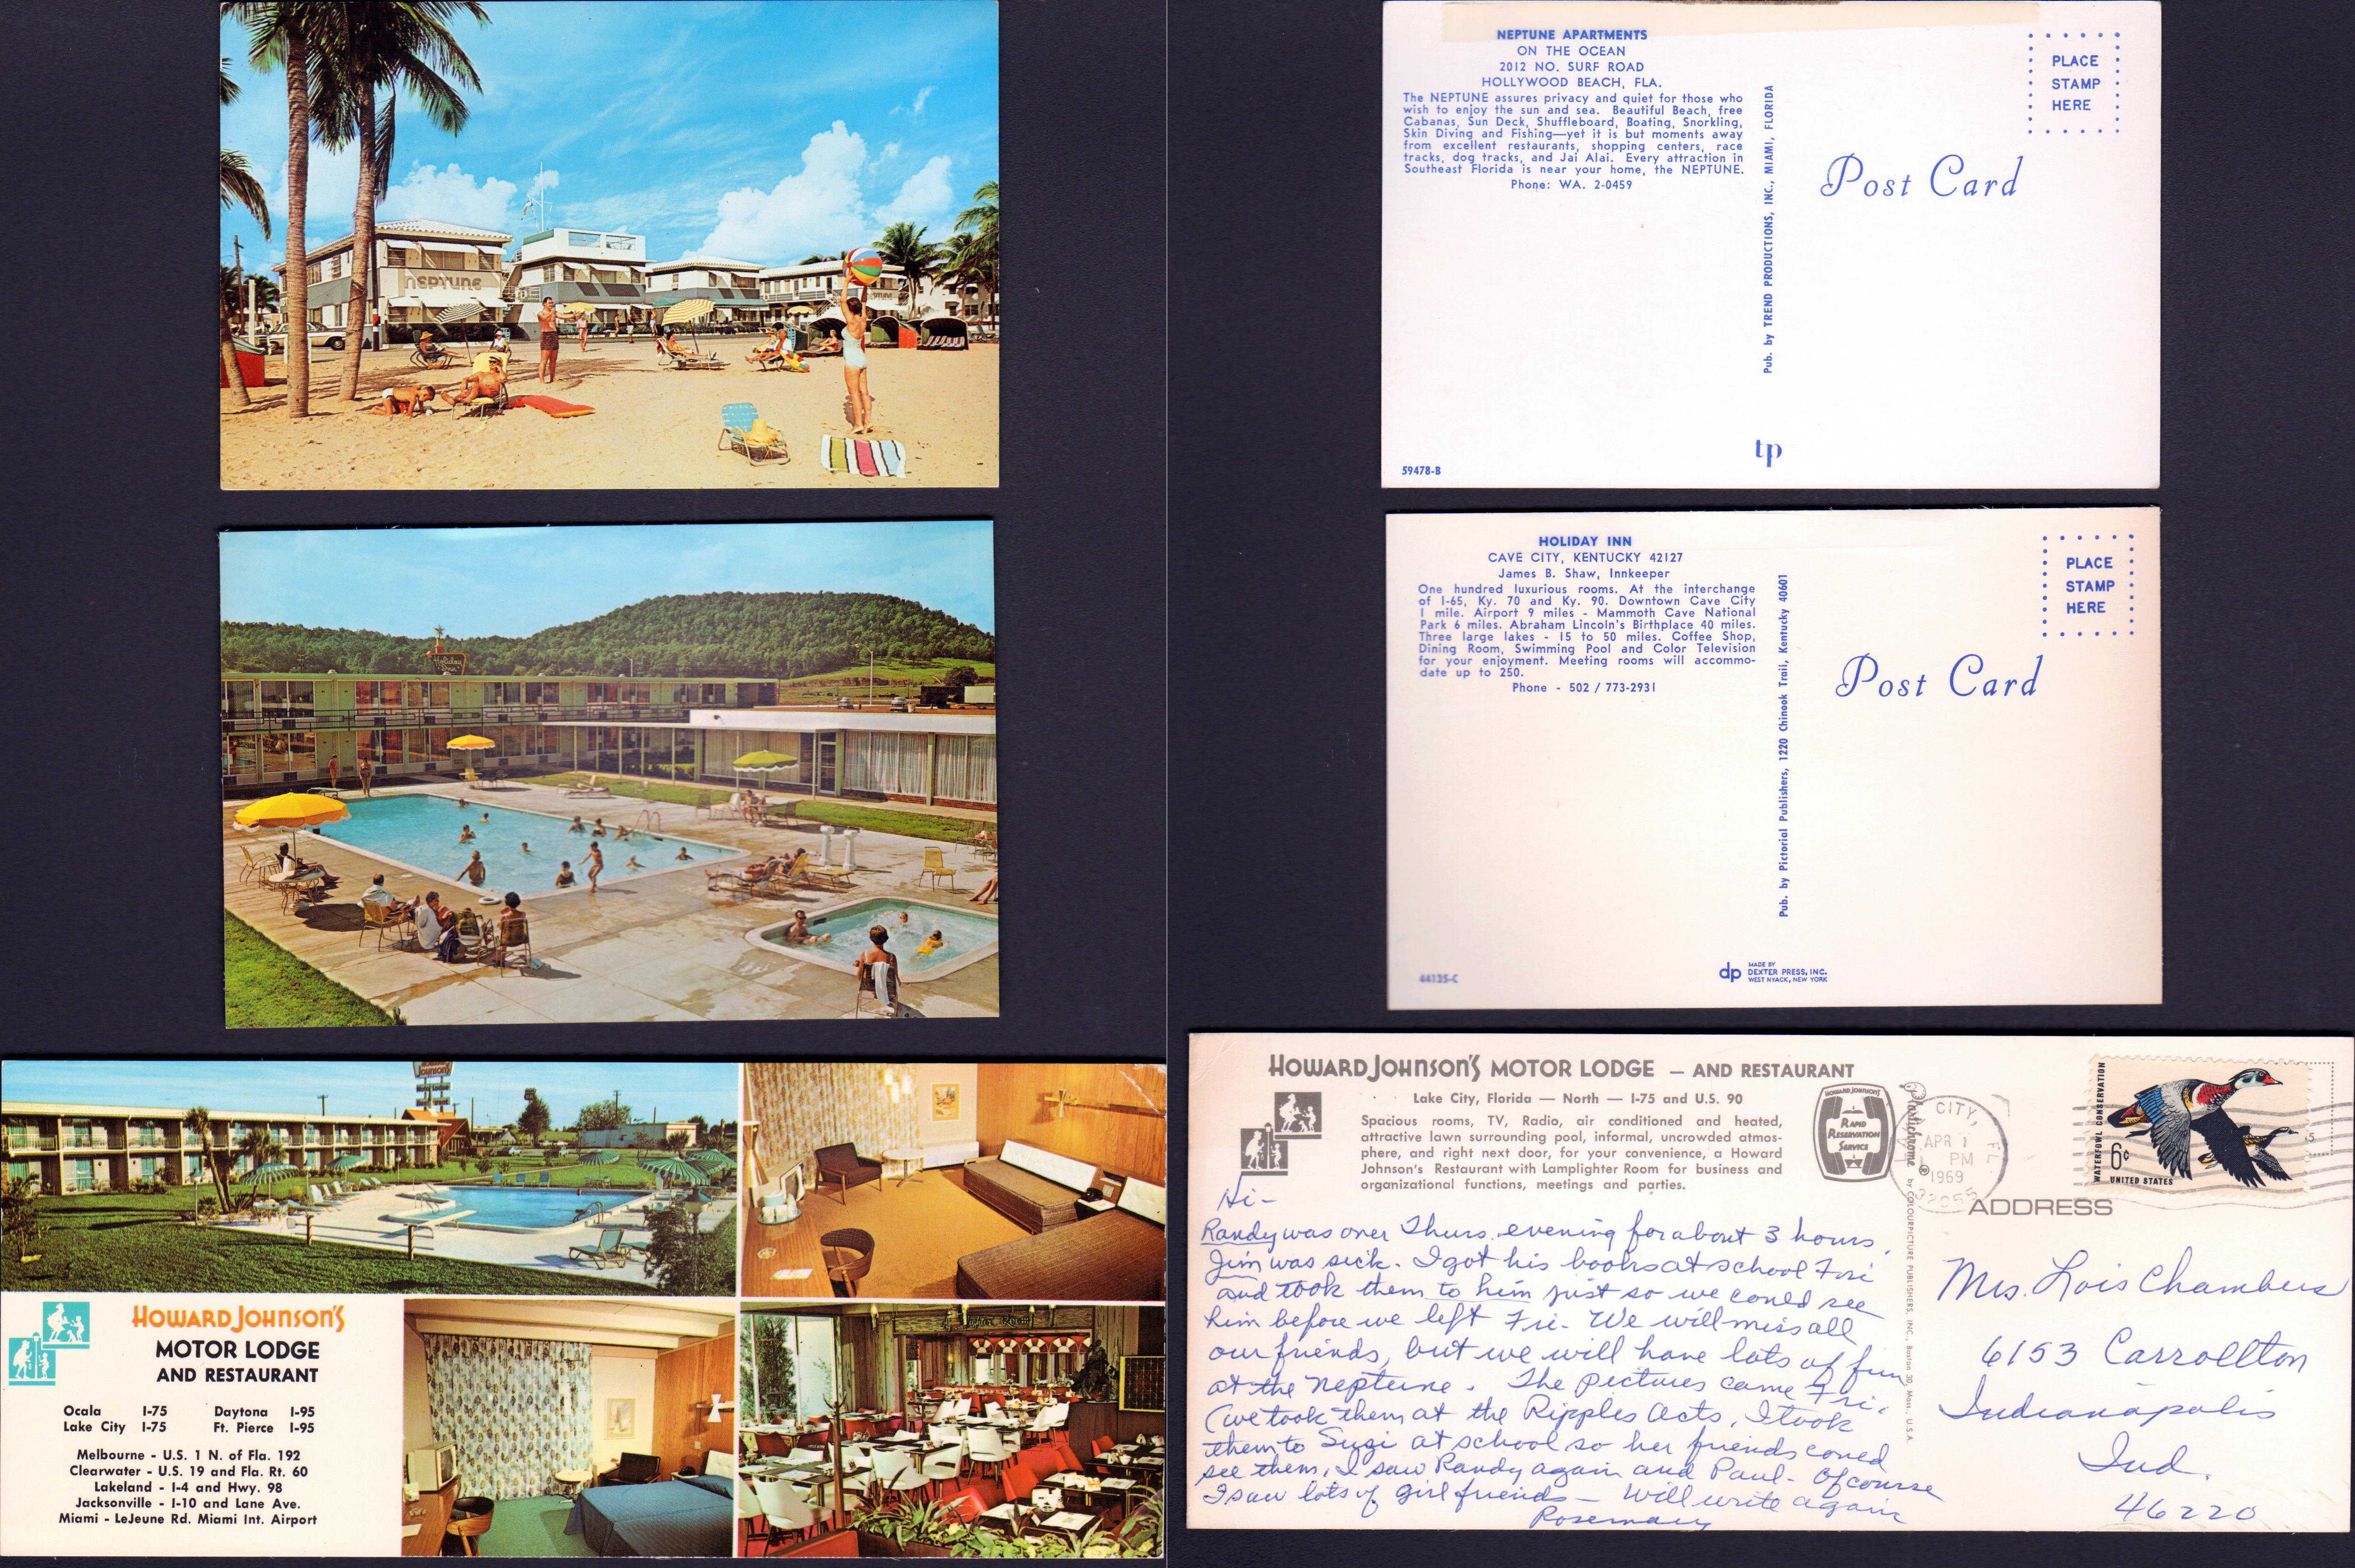 NEPTUNE
Holiday Inn
HOWARD JOHNSON'S
MOTOR LODGE
AND RESTAURANT
Ocala I-75 Daytona I-95
Lake City I-75 Ft. Pierce I-95
Melbourne - U.S. 1 N. of Fla. 192
Clearwater - U.S. 19 and Fla. Rt. 60
Lakeland - I-4 and Hwy. 98
Jacksonville - I-10 and Lane Ave.
Miami - LeJeune Rd. Miami Int. Airport
NEPTUNE APARTMENTS
ON THE OCEAN
2012 NO. SURF ROAD
HOLLYWOOD BEACH, FLA.
The NEPTUNE assures privacy and quiet for those who
wish to enjoy the sun and sea. Beautiful Beach, free
Cabanas, Sun Deck, Shuffleboard, Boating, Snorkling,
Skin Diving and Fishing—yet it is but moments away
from excellent restaurants, shopping centers, race
tracks, dog tracks, and Jai Alai. Every attraction in
Southeast Florida is near your home, the NEPTUNE.
Phone: WA. 2-0459
59478-B
Pub. by TREND PRODUCTIONS, INC., MIAMI, FLORIDA
tp
PLACE
STAMP
HERE
Post Card
HOLIDAY INN
CAVE CITY, KENTUCKY 42127
James B. Shaw, Innkeeper
One hundred luxurious rooms. At the interchange
of I-65, Ky. 70 and Ky. 90. Downtown Cave City
1 mile. Airport 9 miles - Mammoth Cave National
Park 6 miles. Abraham Lincoln's Birthplace 40 miles.
Three large lakes - 15 to 50 miles. Coffee Shop,
Dining Room, Swimming Pool and Color Television
for your enjoyment. Meeting rooms will accommo-
date up to 250.
Phone - 502 / 773-2931
44135-C
Pub. by Pictorial Publishers, 1220 Chinook Trail, Kentucky 40601
dp MADE BY
DEXTER PRESS, INC.
WEST NYACK, NEW YORK
PLACE
STAMP
HERE
Post Card
HOWARD JOHNSON'S MOTOR LODGE — AND RESTAURANT
Lake City, Florida — North — I-75 and U.S. 90
Spacious rooms, TV, Radio, air conditioned and heated,
attractive lawn surrounding pool, informal, uncrowded atmos-
phere, and right next door, for your convenience, a Howard
Johnson's Restaurant with Lamplighter Room for business and
organizational functions, meetings and parties.
HOWARD JOHNSON'S
RAPID
RESERVATION
SERVICE
Hi-
Randy was over Thurs. evening for about 3 hours.
Jim was sick. I got his books at school Fri
and took them to him just so we could see
him before we left Fri- We will miss all
our friends, but we will have lots of fun
at the Neptune. The pictures came Fri.
(we took them at the Ripples Acts, I took
them to Suzi at school so her friends coned
see them, I saw Randy again and Paul- Of course
I saw lots of girl friends - Will write again
Rosemary
Plastichrome ® by COLOURPICTURE PUBLISHERS, INC., Boston 30, Mass., U.S.A.
CITY, FL
APR 1
PM
1969
32055
WATERFOWL CONSERVATION
6¢
UNITED STATES
ADDRESS
Mrs. Lois Chambers
6153 Carrollton
Indianapolis
Ind.
46220